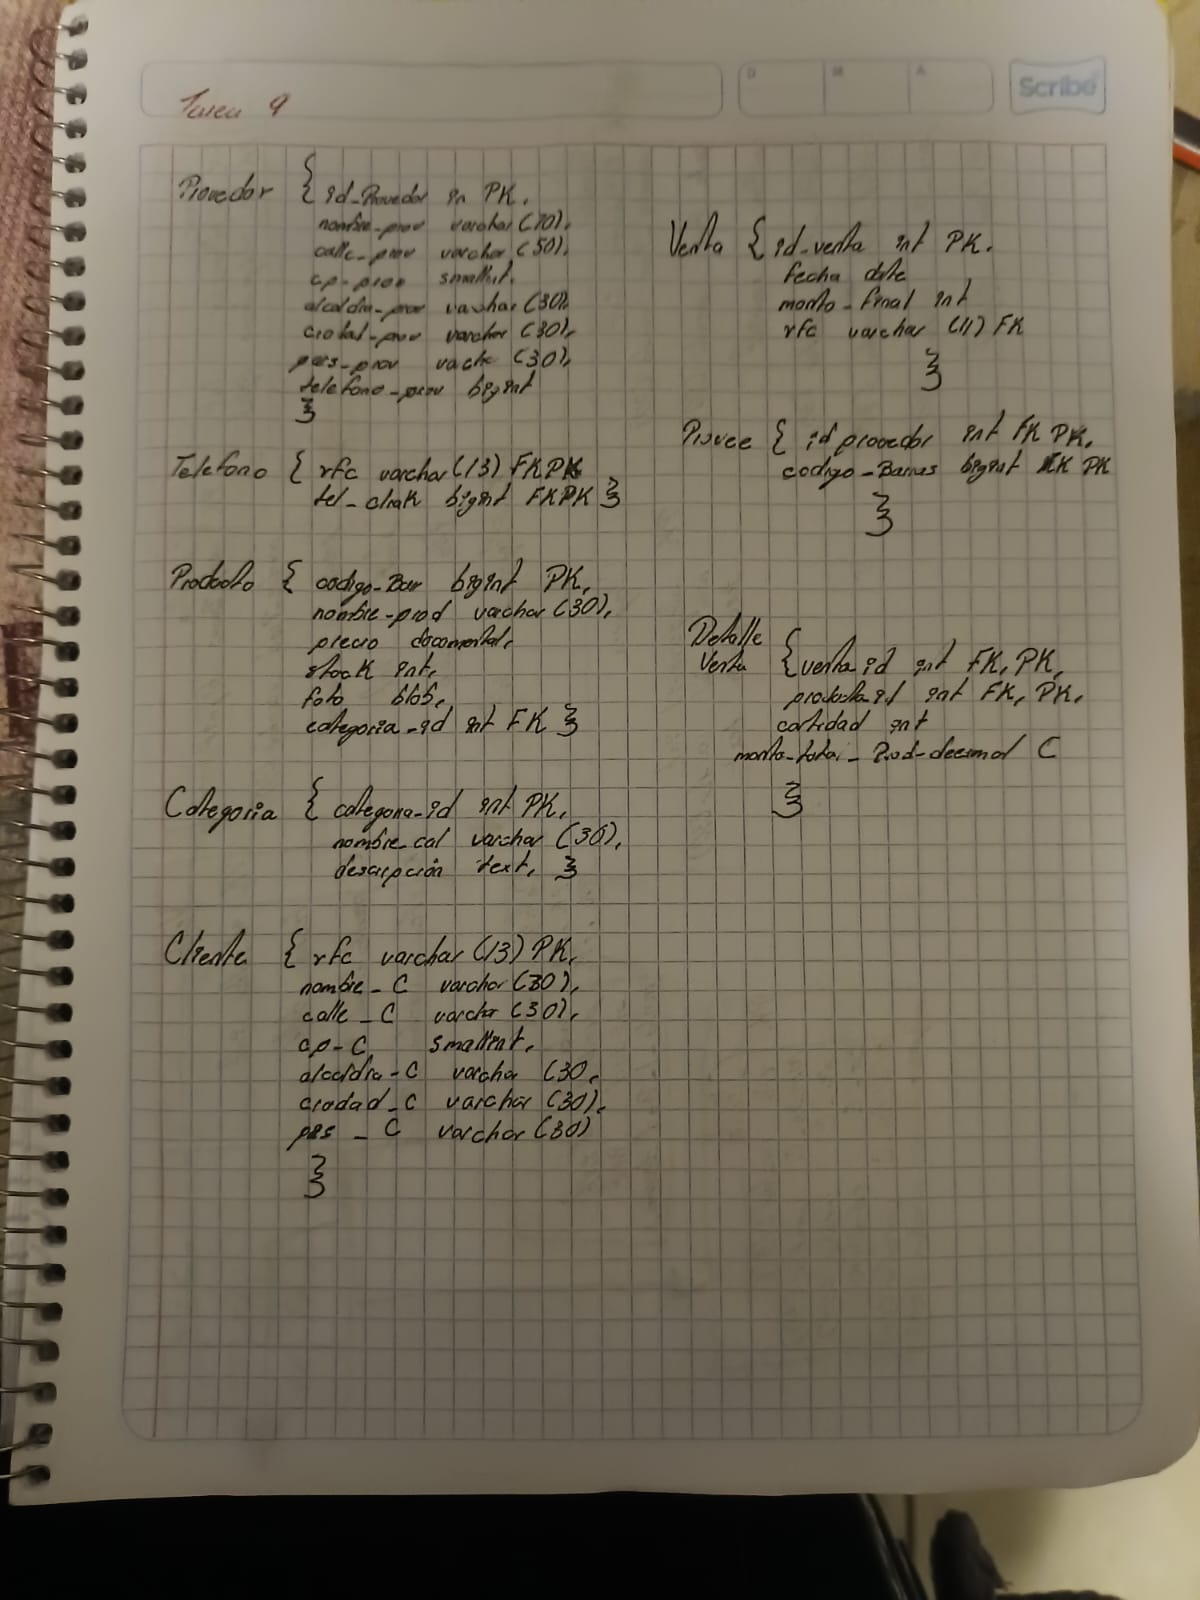 Tarea 9
D M A
Scribe
Provedor { id_Provedor in PK,
nombre_prov varchar (70),
calle_prov varchar (50),
cp_prov smallint,
alcaldia_prov varchar (30),
ciudad_prov varchar (30),
pais_prov varcha (30),
telefono_prov bigint
}
Telefono { rfc varchar (13) FKPK
tel_ bigint FKPK }
Producto { codigo_Bar bigint PK,
nombre_prod varchar (30),
precio
stock int,
foto blob,
categoria_id int FK }
Categoria { categoria_id int PK,
nombre_cat varchar (30),
descripción text, }
Cliente { rfc varchar (13) PK,
nombre_C varchar (30),
calle_C varchar (30),
cp_C smallint,
alcaldia_C varchar (30,
ciudad_C varchar (30),
pais_C varchar (30)
}
Venta { id_venta int PK,
fecha date
monto_final int
rfc varchar (11) FK
}
Provee { id provedor int FK PK,
codigo_Barras bigint FK PK
}
Detalle
Venta { venta_id int FK, PK,
producto_id int FK, PK,
cantidad int
monto_total_Prod_decimal C
}